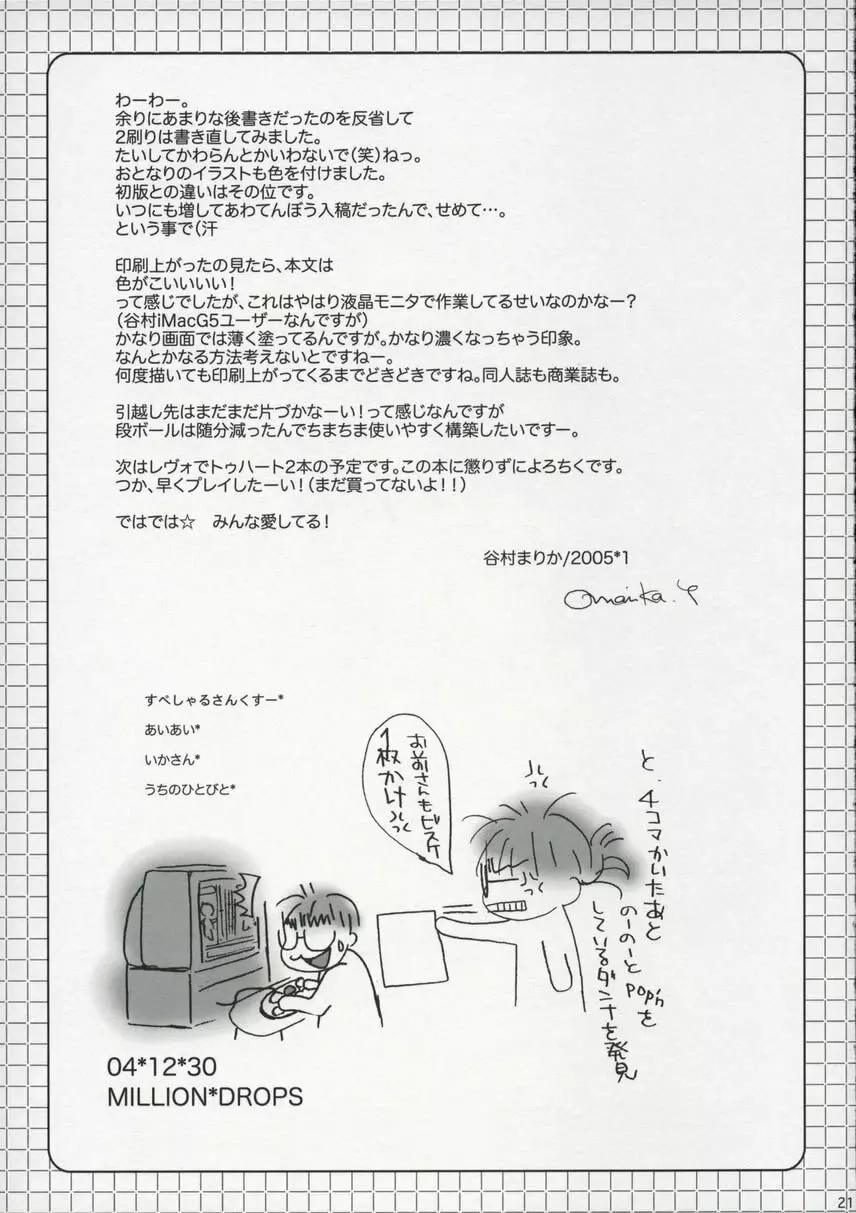 わーわー。
余りにあまりな後書きだったのを反省して
2刷りは書き直してみました。
たいしてかわらんとかいわないで(笑)ねっ。
おとなりのイラストも色を付けました。
初版との違いはその位です。
いつにも増してあわてんぼう入稿だったんで、せめて…。
という事で(汗
印刷上がったの見たら、本文は
色がこいいいい！
って感じでしたが、これはやはり液晶モニタで作業してるせいなのかなー？
(谷村iMacG5ユーザーなんですが)
かなり画面では薄く塗ってるんですが。かなり濃くなっちゃう印象。
なんとかなる方法考えないとですねー。
何度描いても印刷上がってくるまでどきどきですね。同人誌も商業誌も。
引越し先はまだまだ片づかなーい！って感じなんですが
段ボールは随分減ったんでちまちま使いやすく構築したいですー。
次はレヴォでトゥハート2本の予定です。この本に懲りずによろちくです。
つか、早くプレイしたーい！(まだ買ってないよ！！)
ではでは☆　みんな愛してる！
谷村まりか/2005*1
すぺしゃるさんくすー*
あいあい*
いかさん*
うちのひとびと*
と、4コマかいたあと
のーのーとpop'nを
しているダンナを発見
お前さんもビスケ
1枚かけ
04*12*30
MILLION*DROPS
21